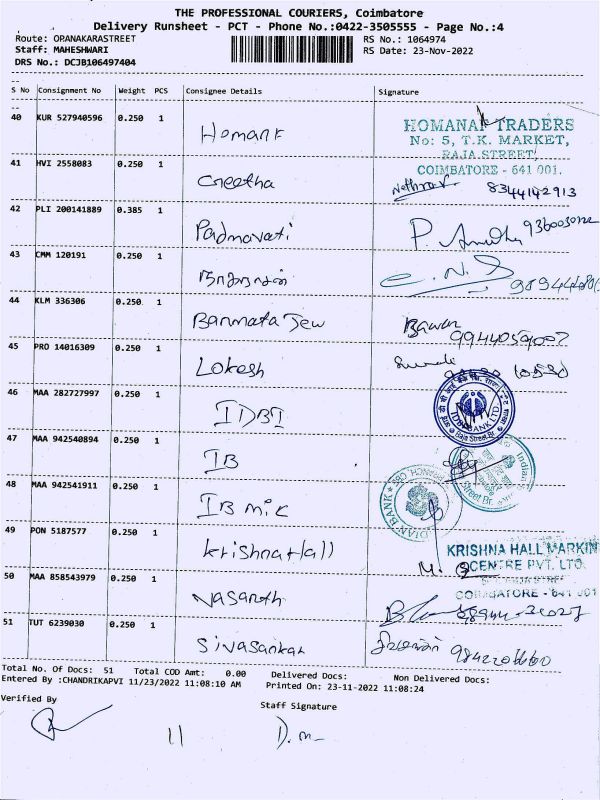 THE PROFESSIONAL COURIERS, Coimbatore
Delivery Runsheet - PCT - Phone No.:0422-3505555 - Page No.:4
Route: OPANAKARASTREET RS No.: 1064974
Staff: MAHESHWARI RS Date: 23-Nov-2022
DRS No.: DCJB106497404
S No Consignment No Weight PCS Consignee Details Signature
40 KUR 527940596 0.250 1 Homank HOMANAK TRADERS
No: 5, T.K. MARKET,
RAJA STREET,
COIMBATORE - 641 001.
41 HVI 2558083 0.250 1 Geetha 8344142913
42 PLI 200141889 0.385 1 Padmavati P.
43 CMM 120191 0.250 1
44 KLM 336306 0.250 1 Banmata Jew Bawan
45 PRO 14016309 0.250 1 Lokesh
46 MAA 282727997 0.250 1 IDBI IDBI BANK LTD.
47 MAA 942540894 0.250 1 IB
48 MAA 942541911 0.250 1 IB mic
49 PON 5187577 0.250 1 Krishna Hall KRISHNA HALL MARKIN
CENTRE PVT. LTD.
COIMBATORE - 641 001
50 MAA 858543979 0.250 1 Vasanth
51 TUT 6239030 0.250 1 Sivasankar
Total No. Of Docs: 51 Total COD Amt: 0.00 Delivered Docs: Non Delivered Docs:
Entered By :CHANDRIKAPVI 11/23/2022 11:08:10 AM Printed On: 23-11-2022 11:08:24
Verified By Staff Signature
11 D. m